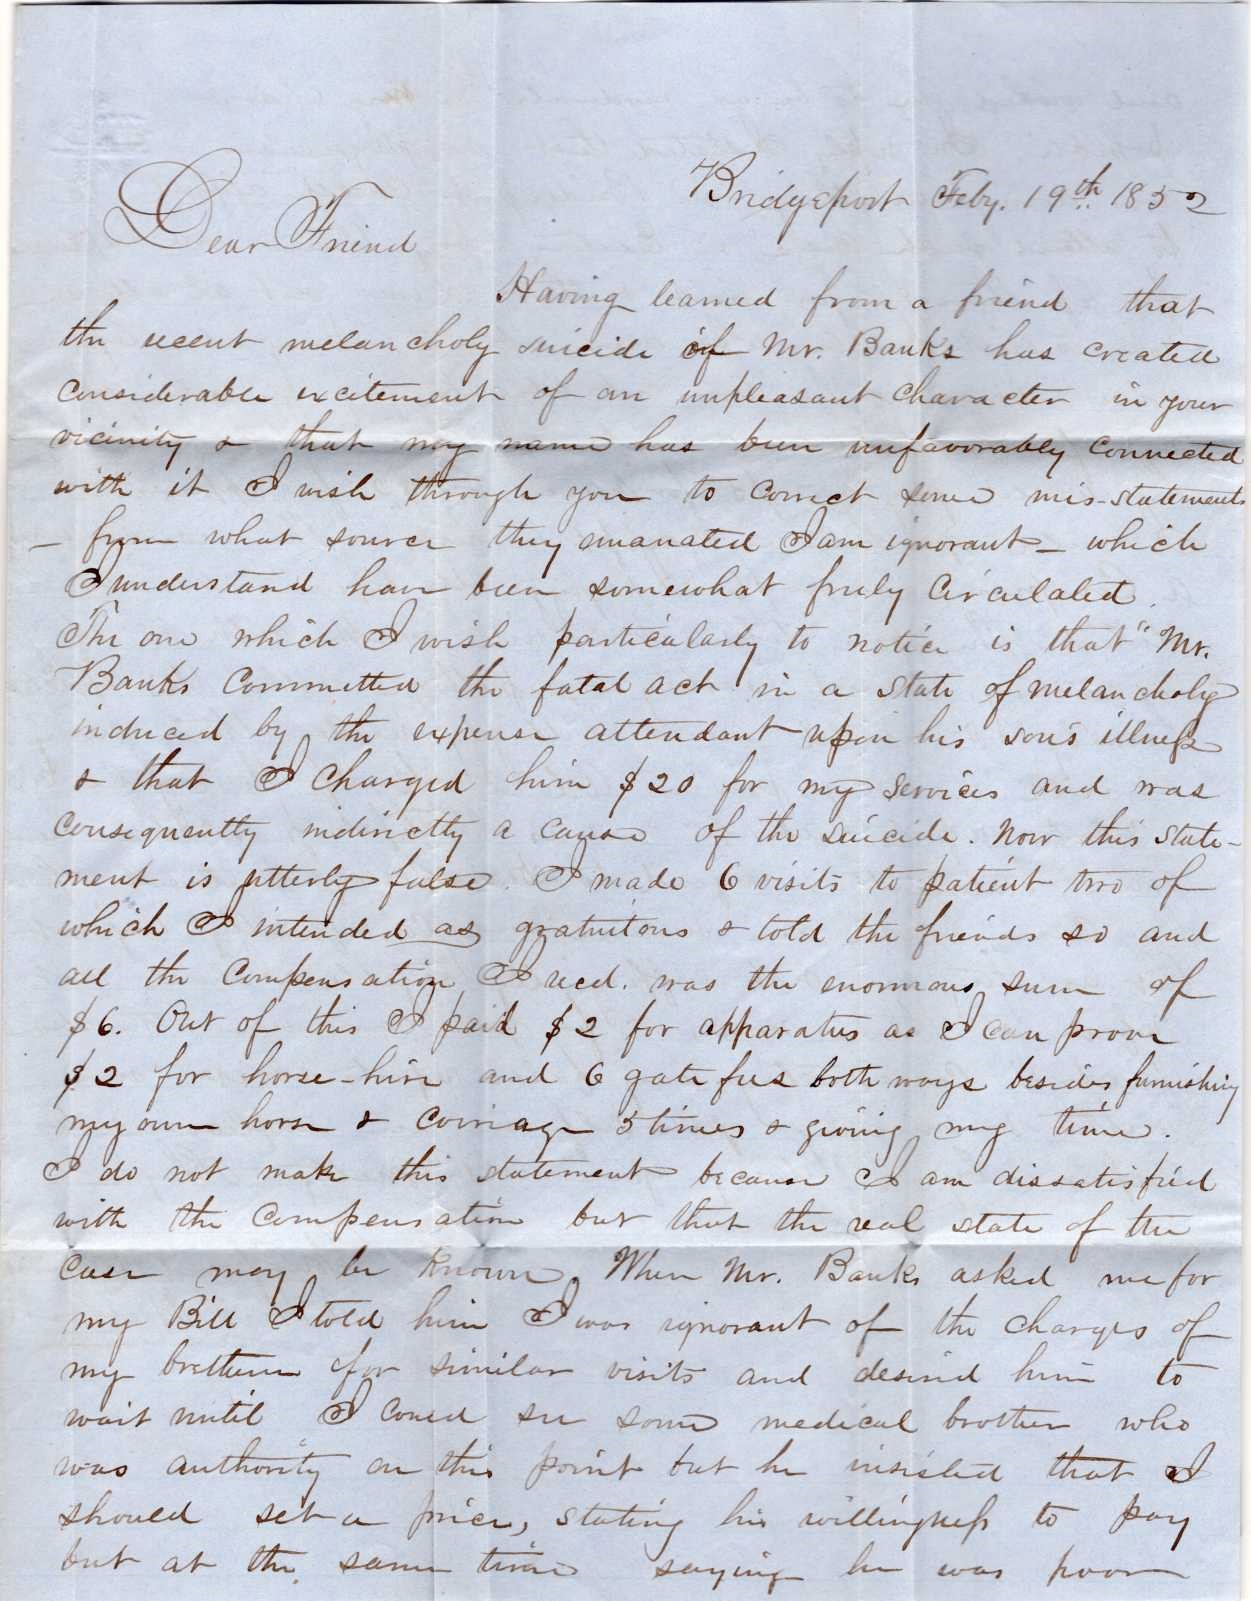 Bridgeport Feby. 19th 1852
Dear Friend
Having learned from a friend that
the recent melancholy suicide of Mr. Banks has created
considerable excitement of an unpleasant character in your
vicinity & that my name has been unfavorably connected
with it I wish through you to correct some mis-statements
- from what source they emanated I am ignorant - which
I understand have been somewhat freely circulated.
The one which I wish particularly to notice is that "Mr.
Banks committed the fatal act in a state of melancholy
induced by the expense attendant upon his son's illness
& that I charged him $20 for my services and was
consequently indirectly a cause of the suicide. Now this state-
ment is utterly false. I made 6 visits to patient two of
which I intended as gratuitous & told the friends so and
all the compensation I recd. was the enormous sum of
$6. Out of this I paid $2 for apparatus as I can prove
$2 for horse-hire and 6 gate fees both ways besides furnishing
my own horse & carriage 5 times & giving my time.
I do not make this statement because I am dissatisfied
with the compensation but that the real state of the
case may be known. When Mr. Banks asked me for
my Bill I told him I was ignorant of the charges of
my brethren for similar visits and desired him to
wait until I could see some medical brother who
was authority on this point but he insisted that I
should set a price, stating his willingness to pay
but at the same time saying he was poor